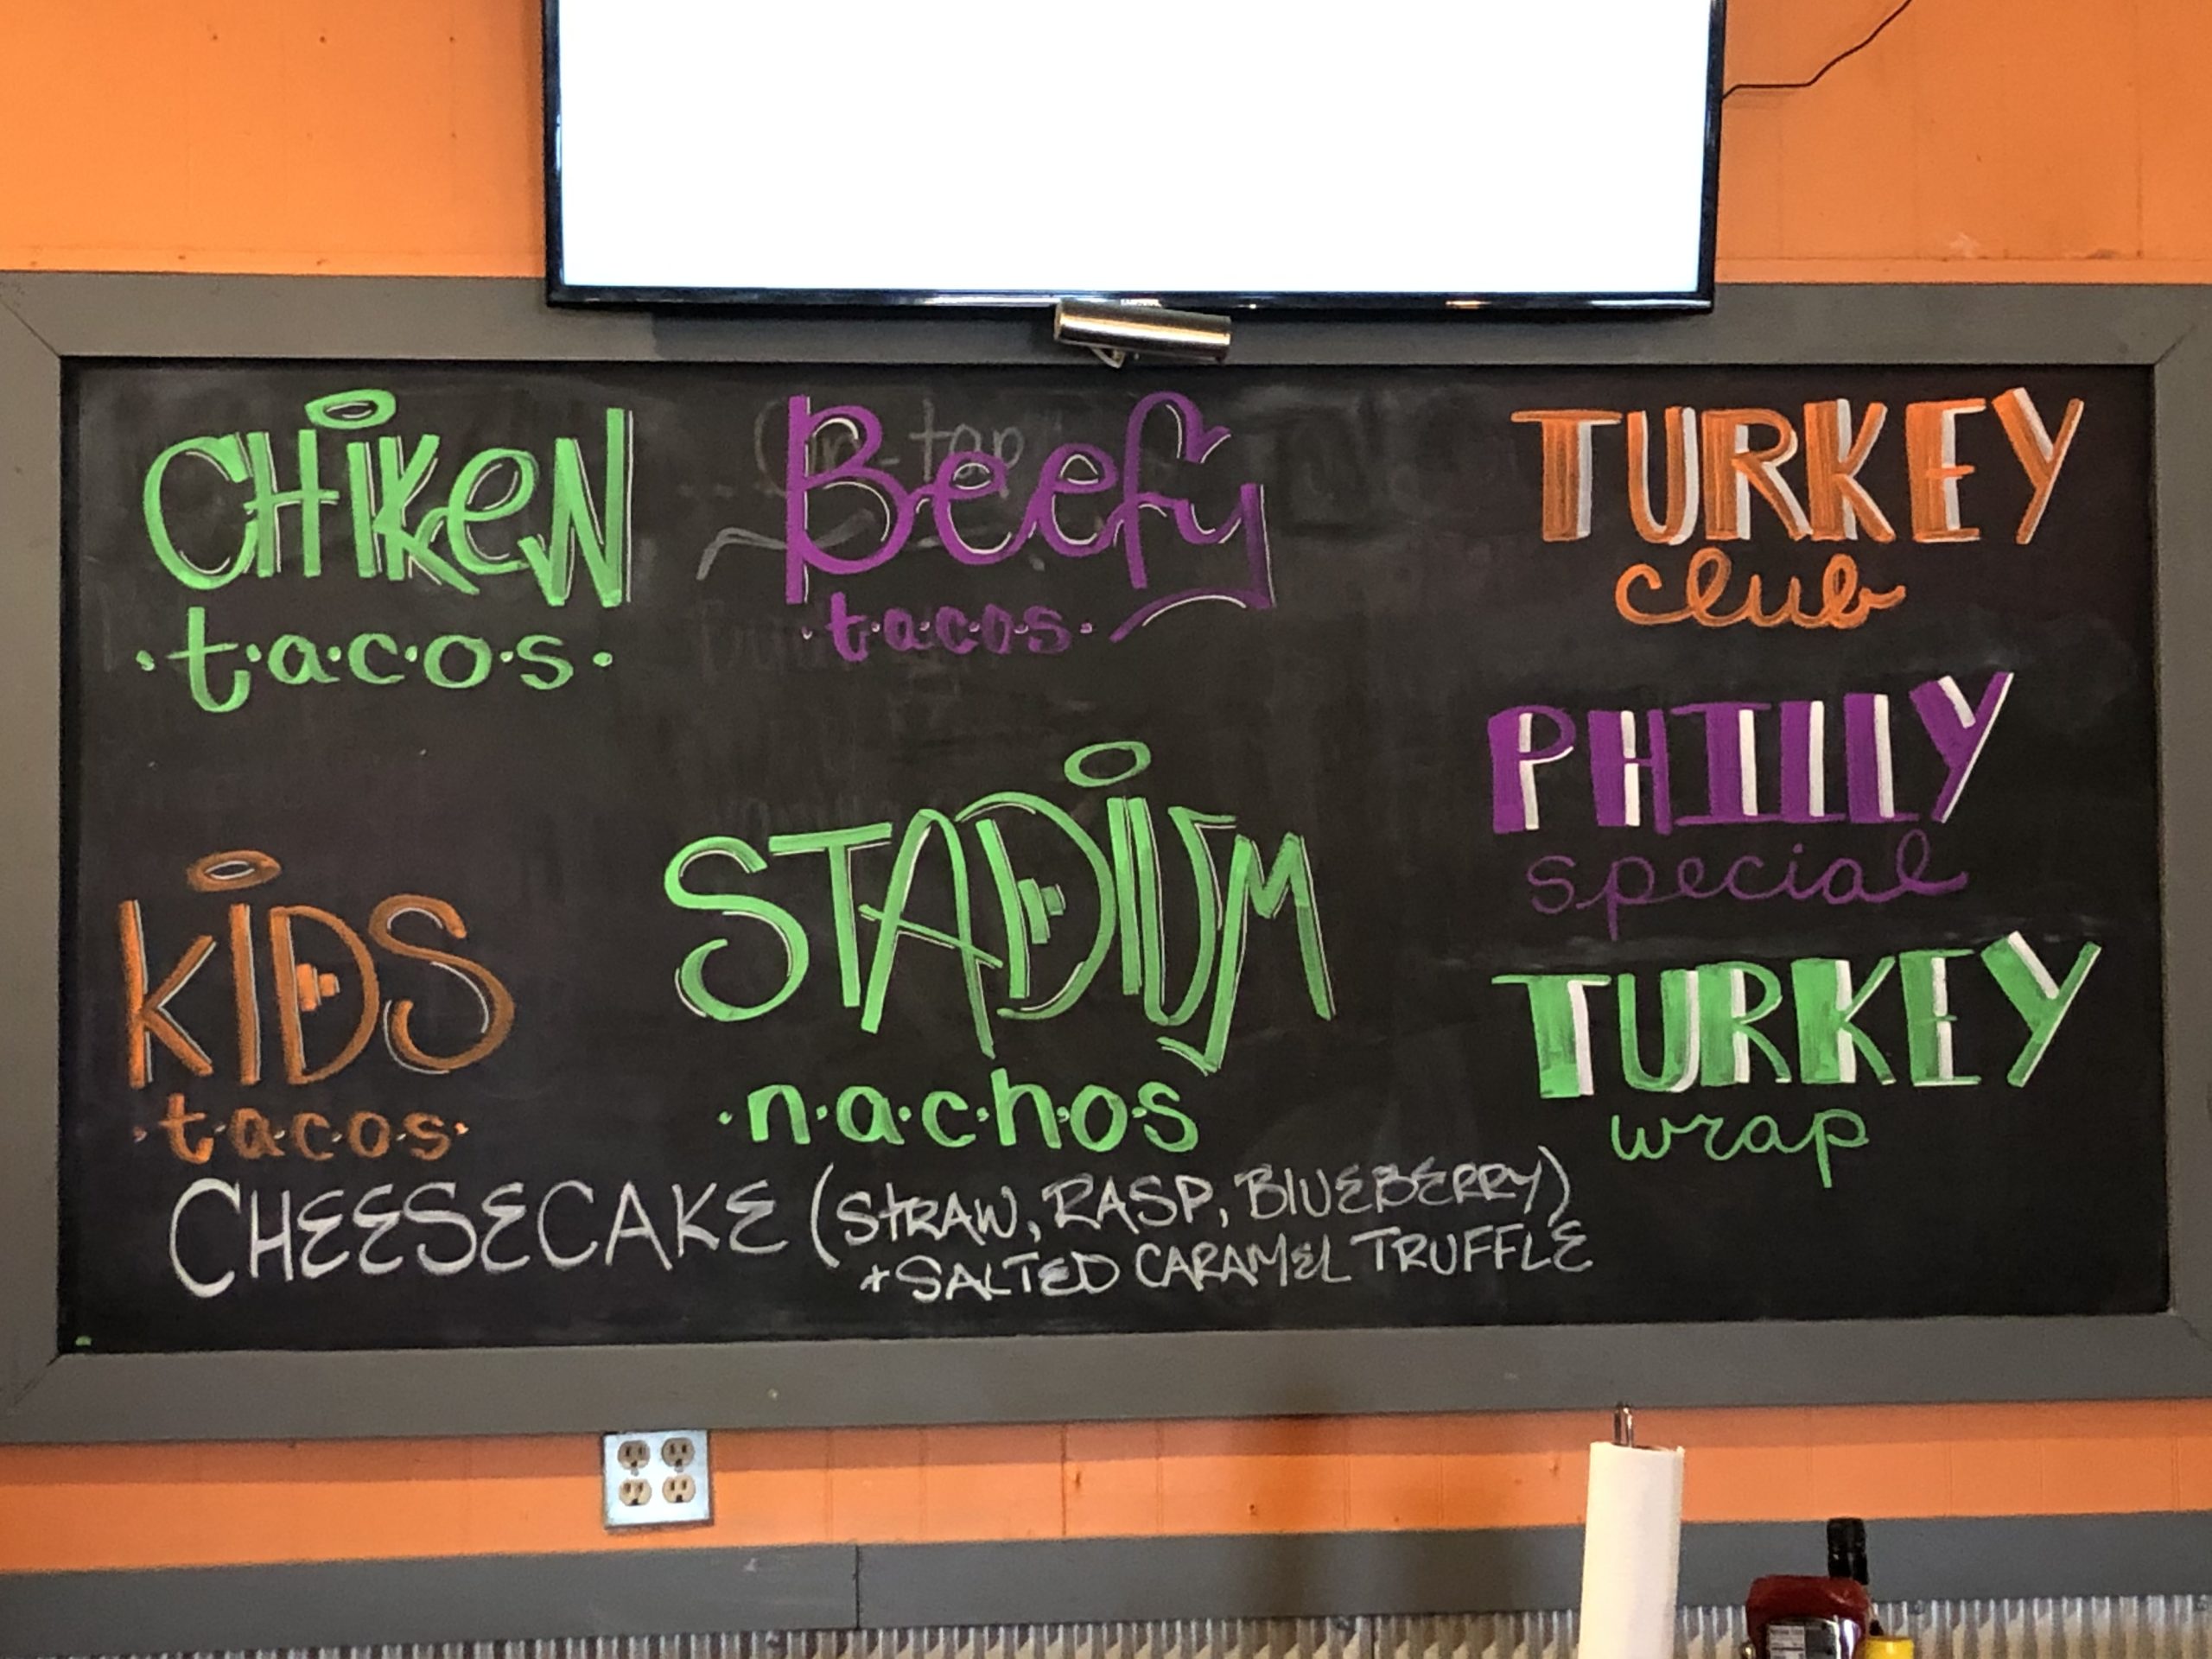 CHiKeN
·t·a·c·o·s·
Beefy
·t·a·c·o·s·
TURKEY
club
PHILLY
special
KiDS
·t·a·c·o·s·
STADiUM
·n·a·c·h·o·s
TURKEY
wrap
CHEESECAKE (STRAW, RASP, BLUEBERRY)
+ SALTED CARAMEL TRUFFLE